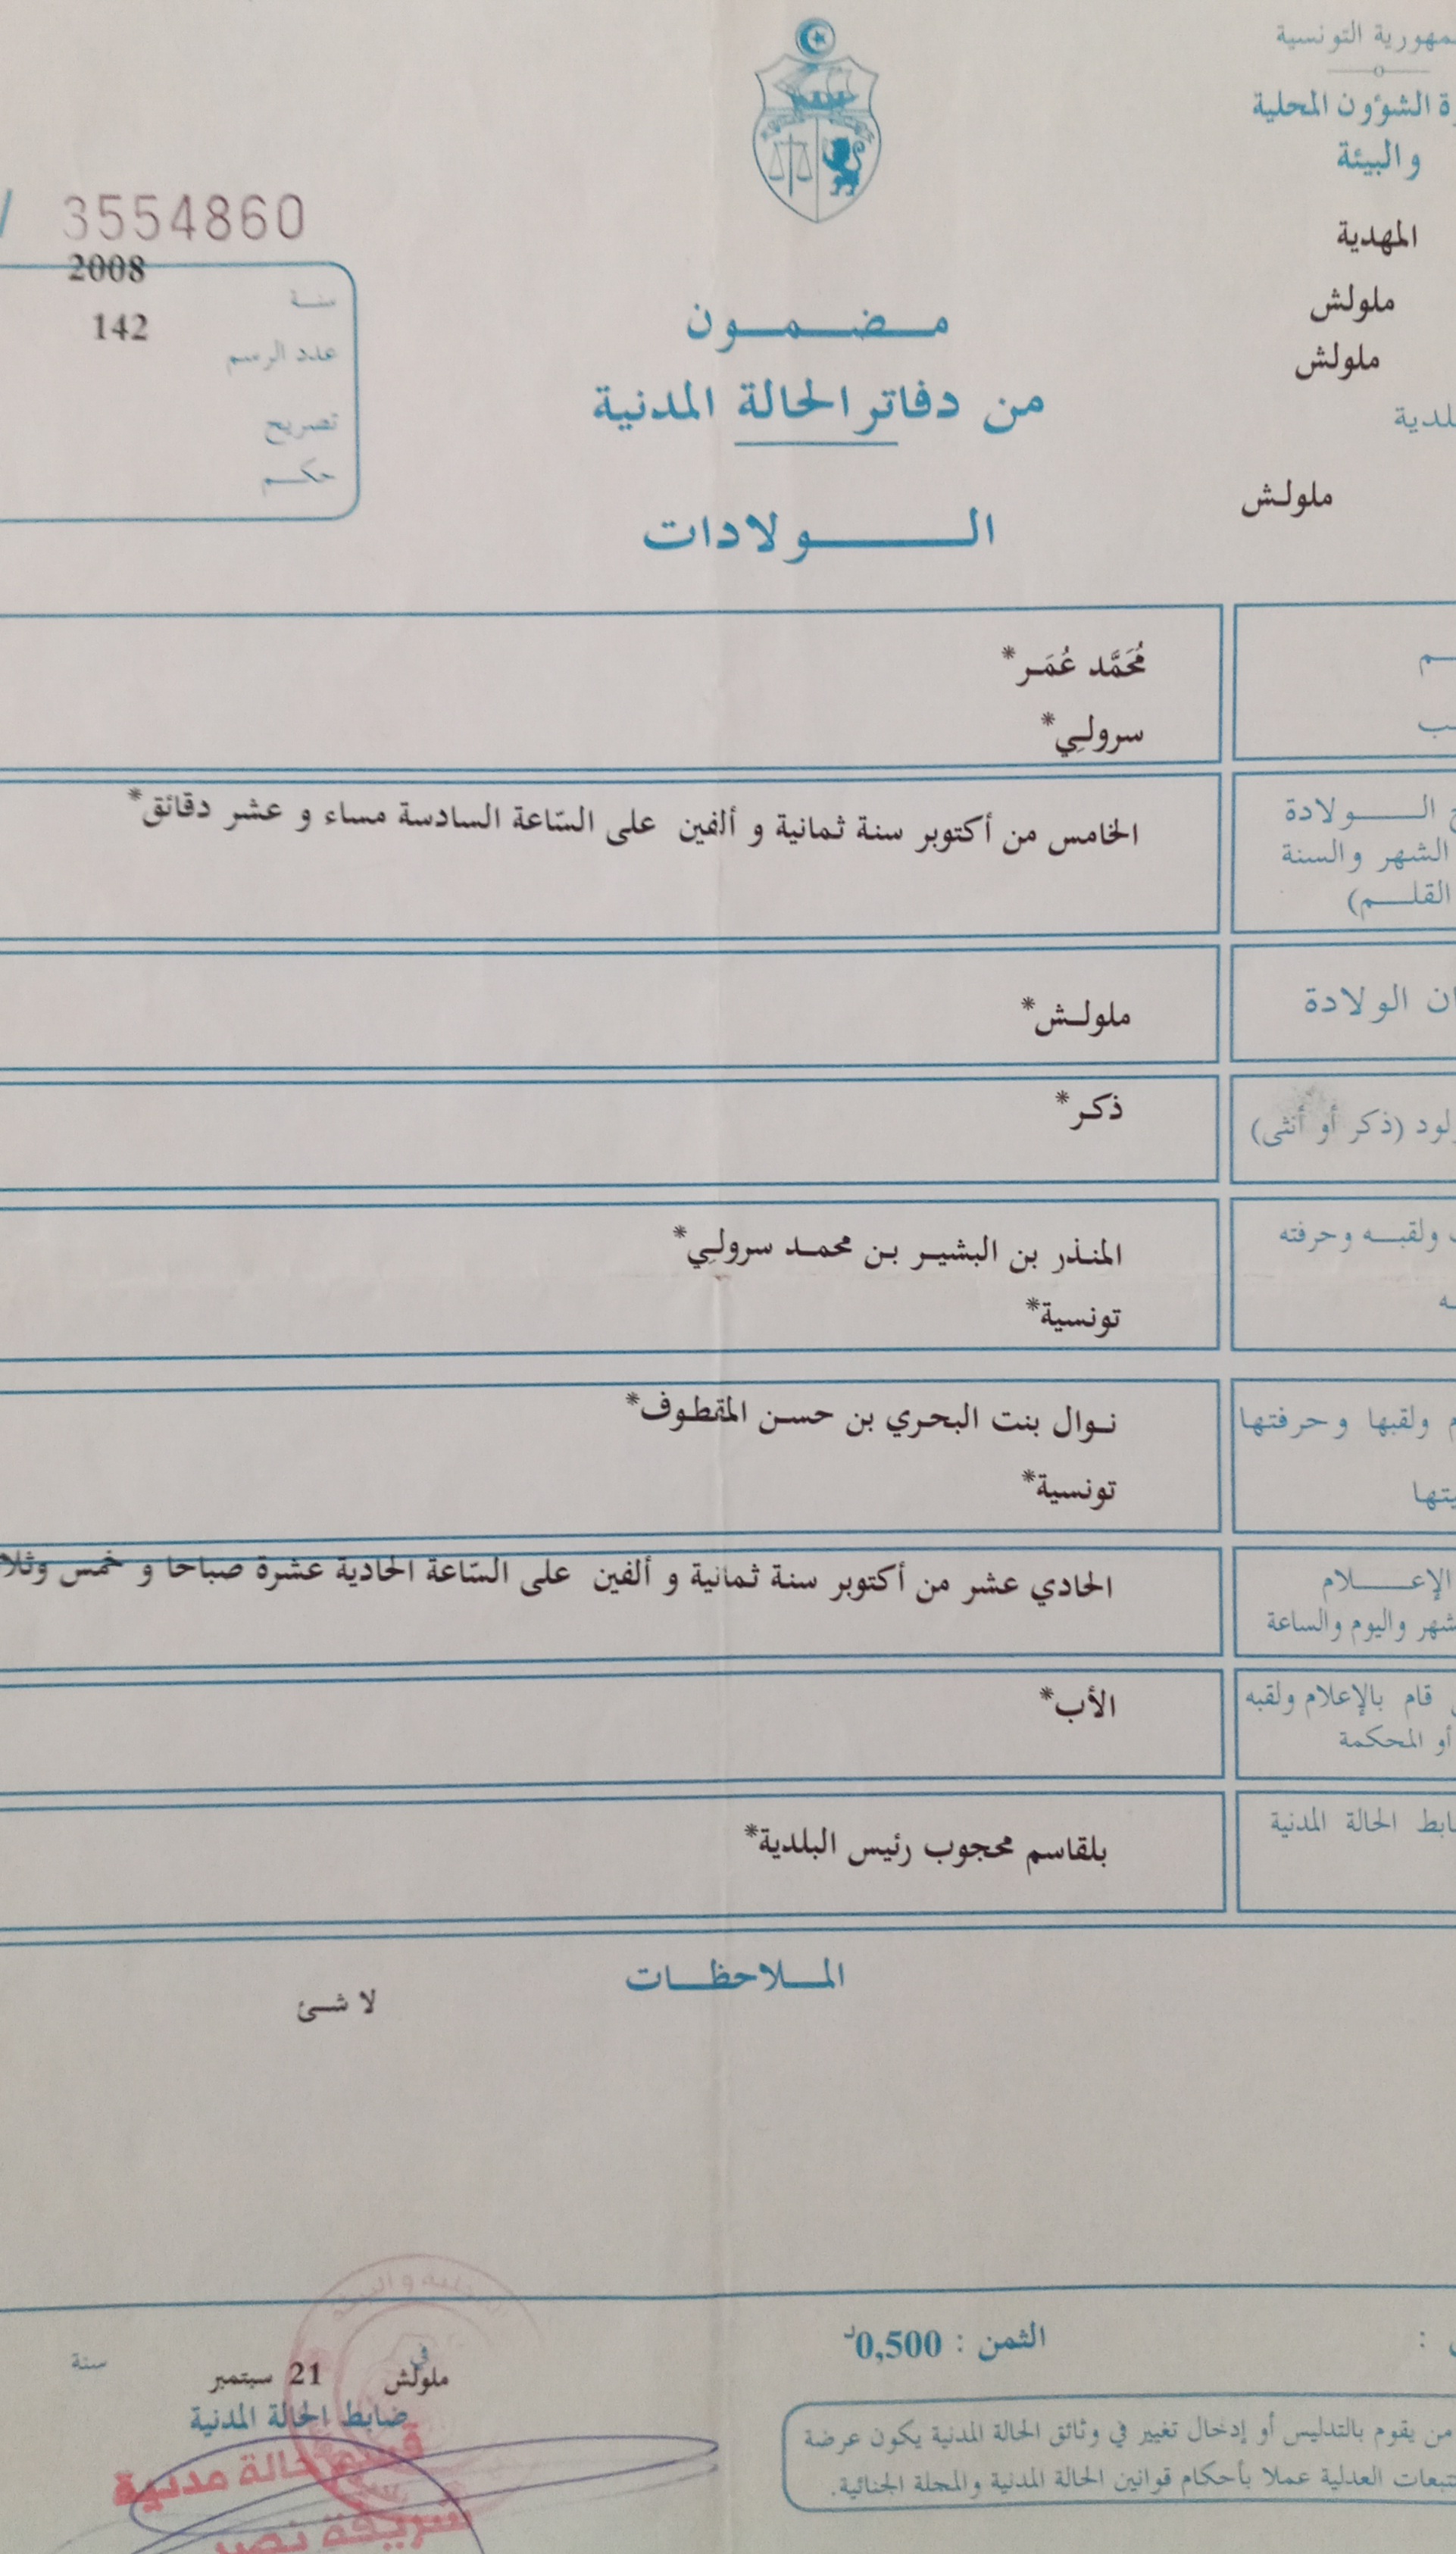 الجمهورية التونسية
وزارة الشؤون المحلية
والبيئة
المهدية
ملولش
ملولش
بلدية
ملولش
3554860
2008
سنة
142
عدد الرسم
تصريح
حكم
مضمون
من دفاتر الحالة المدنية
الولادات
مُحَمَّد عُمَر*
سرولي*
الولادة
الشهر والسنة
القلم)
الخامس من أكتوبر سنة ثمانية و ألفين على السّاعة السادسة مساء و عشر دقائق*
الولادة
ملولش*
(ذكر أو أنثى)
ذكر*
ولقبه وحرفته
المنذر بن البشير بن محمد سرولي*
تونسية*
ولقبها وحرفتها
نوال بنت البحري بن حسن المقطوف*
تونسية*
الإعلام
والشهر واليوم والساعة
الحادي عشر من أكتوبر سنة ثمانية و ألفين على السّاعة الحادية عشرة صباحا و خمس
قام بالإعلام ولقبه
أو المحكمة
الأب*
ضابط الحالة المدنية
بلقاسم محجوب رئيس البلدية*
الملاحظات
لا شئ
الثمن : 0,500د
في
ملولش 21 سبتمبر سنة
ضابط الحالة المدنية
قسم حالة مدنية
شريفة نصير
من يقوم بالتدليس أو إدخال تغيير في وثائق الحالة المدنية يكون عرضة
للتتبعات العدلية عملا بأحكام قوانين الحالة المدنية والمجلة الجنائية.